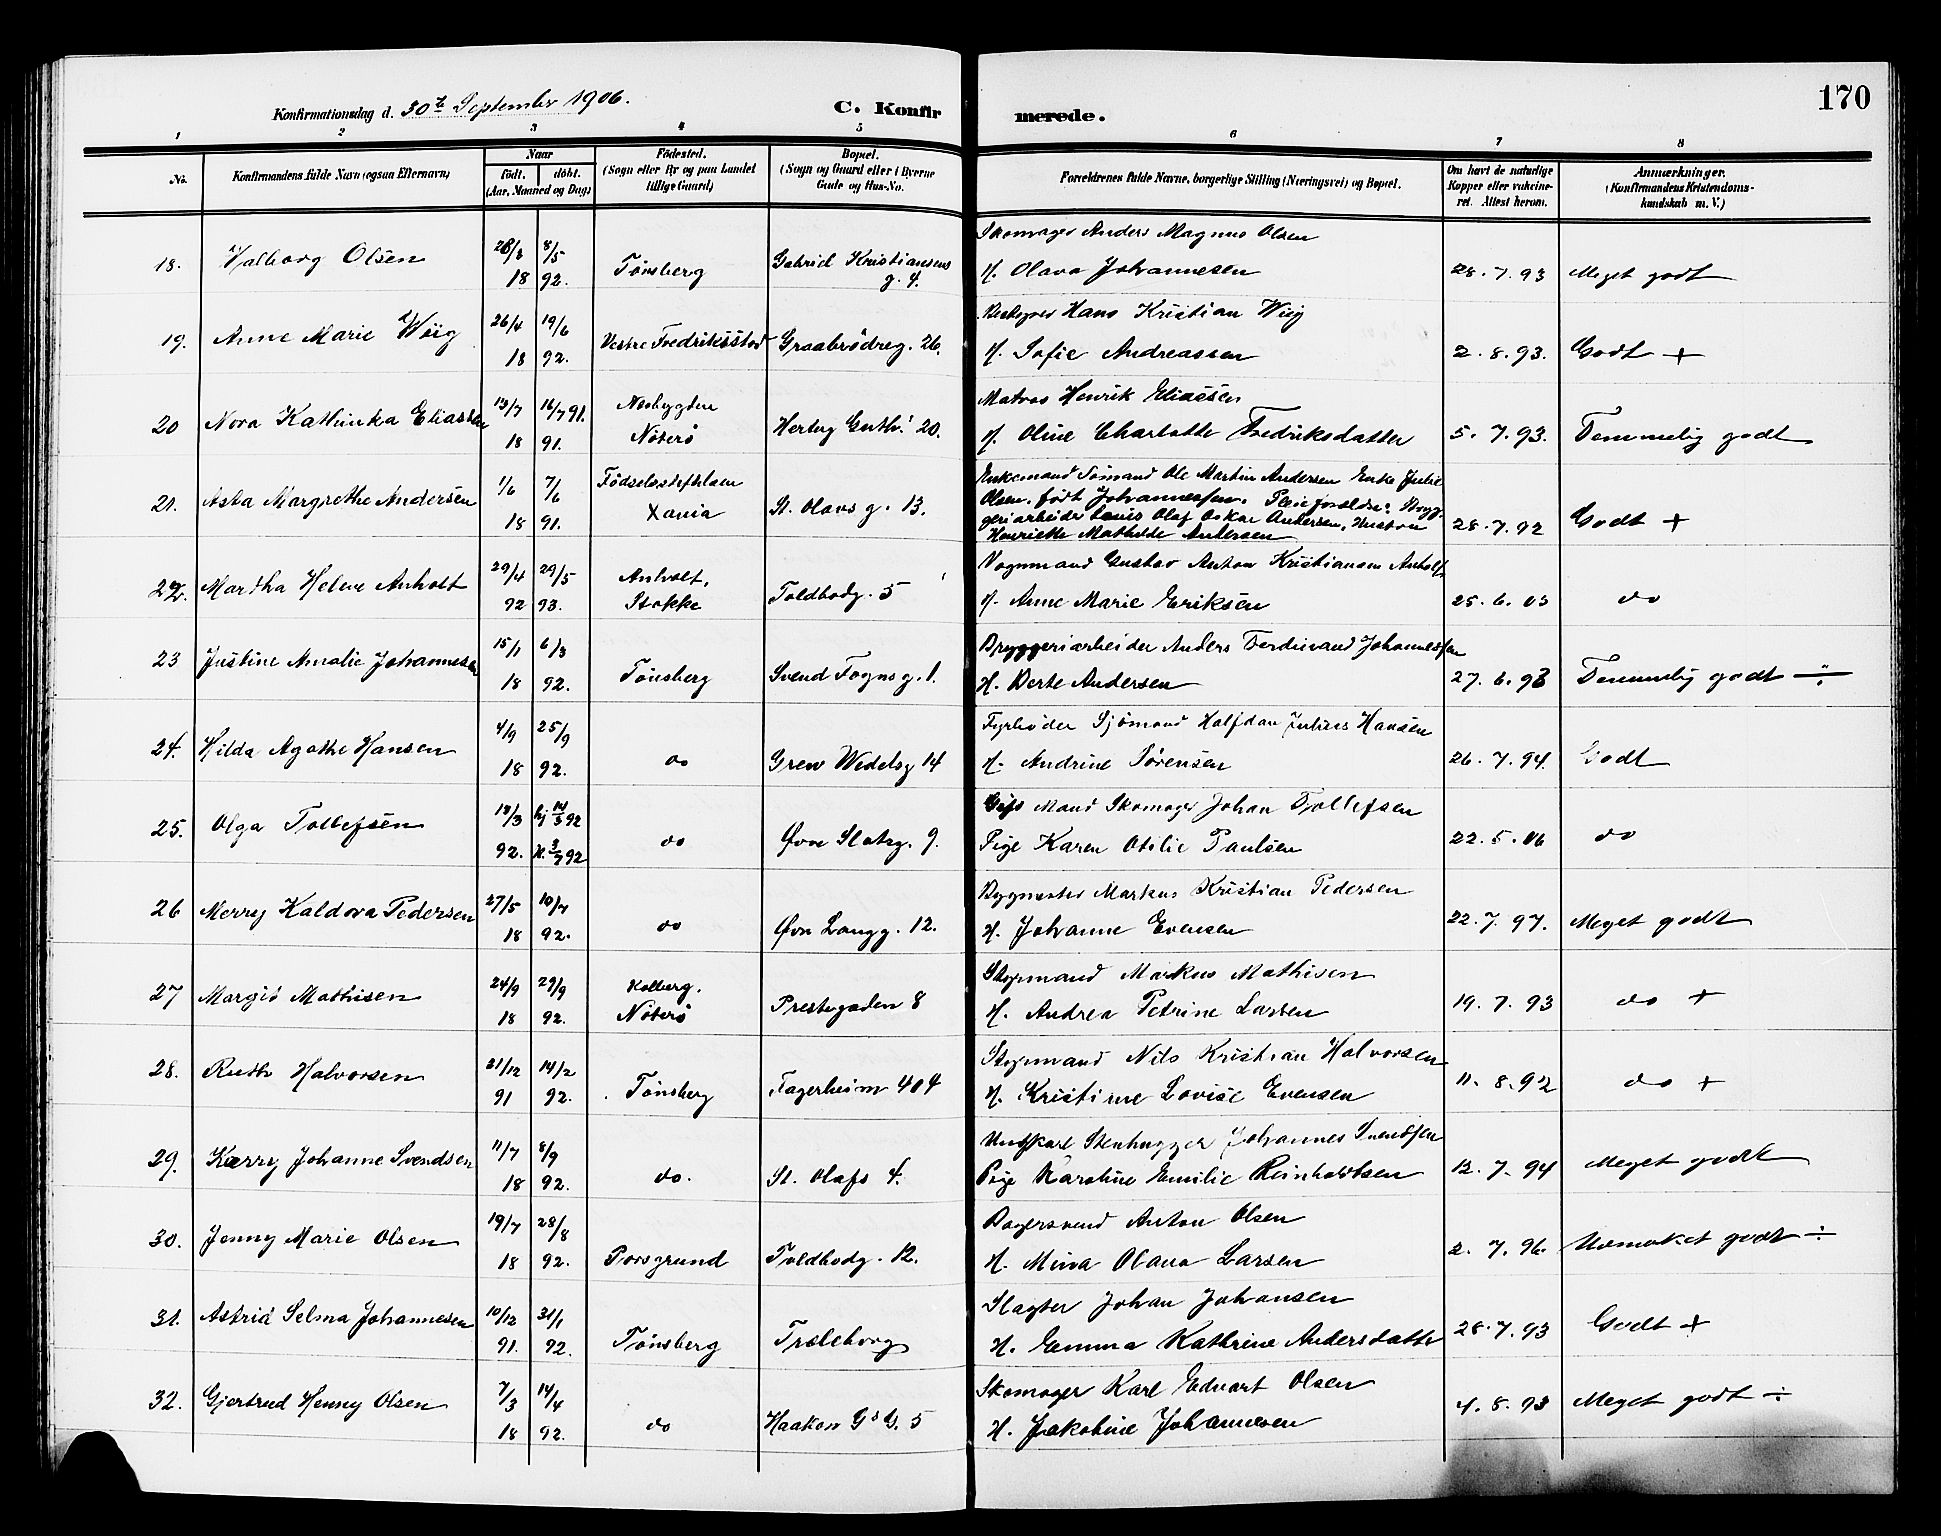 170
Konfirmationsdag d. 30te September 1906. C. Konfirmerede.
1 2 3 4 5 6 7 8
No. Konfirmandens fulde Navn (ogsaa Efternavn) Naar født. døbt. (Aar, Maaned og Dag) Fødested. (Sogn eller By og paa Landet tillige Gaard) Bopæl. (Sogn og Gaard eller i Byerne Gade og Hus-No. Forældrenes fulde Navne, borgerlige Stilling (Næringsvei) og Bopæl. Om havt de naturlige Kopper eller vakcineret. Attest herom. Anmærkninger. (Konfirmandens Kristendomskundskab m. V.)
18. Valborg Olsen 28/3 18 8/5 92. Tønsberg Gabriel Kristiansens g. 4. Skomager Anders Magnus Olsen
H. Olava Johannesen 28.7.93 Meget godt
19. Anne Marie Wiig 26/4 18 19/6 92. Vestre Fredriksstad Graabrødreg. 26. Hans Kristian Wiig
H. Sofie Andreassen 2.8.93. Godt +
20 Nora Kathinka Eliassen 13/7 18 16/7 91. 91. Nesbygden Nøterø Hertug Guth. 20. Matros Henrik Eliassen
H. Oline Charlotte Fredriksdatter 5.7.93. Temmelig godt
21. Asta Margrethe Andersen 1/6 18 7/6 91. Fødselsstiftelsen Xania St. Olavs g. 13. Enkemand Sømand Ole Martin Andersen Enke Julie
Olsen, født Johannessen. Pleieforældre: Brygg-
geriarbeider Louis Olaf Oskar Andersen, Hustru
Henriette Mathilde Andersen 28.7.92 Godt +
22. Martha Helene Anholt 29/4 92 29/5 93. Anholt, Stokke Toldbodg. 5 Vognmand Gustav Anton Kristiansen Anholt
H. Anne Marie Eriksen 25.6.03 do
23 Justine Amalie Johannesen 15/1 18 6/3 92. Tønsberg Svend Foynsg. 1. Bryggeriarbeider Anders Ferdinand Johannessen
H. Berte Andersen 27.6.93 Temmelig godt ÷
24. Hilda Agathe Hansen 4/9 18 25/9 92. do Grev Wedelsg 14 Fyrbøder Sjømand Halfdan Julius Hansen
H. Andrine Sørensen 26.7.94. Godt
25. Olga Tollefsen 12/3 92. hj 14/3 92 K. 3/7 92 do Øvre Slotsg. 9. Gift Mand Skomager Johan Tollefsen
Pige Karen Otilie Paulsen 22.5.06 do
26 Merry Kaldora Pedersen 27/5 18 10/7 92. do Øvre Langg. 12. Bygmester Markus Kristian Pedersen
H. Johanne Evensen 22.7.97. Meget godt
27 Margit Mathisen 24/9 18 29/9 92. Kolberg. Nøterø Prestegaden 8 Styrmand Markus Mathisen
H. Andrea Petrine Larsen 19.7.93 do +
28. Ruth Halvorsen 21/12 91 14/2 92. Tønsberg Fagerheim 404 Styrmand Nils Kristian Halvorsen
H. Kristine Lovise Evensen 11.8.92 do +
29. Kærry Johanne Svendsen 11/7 18 8/9 92. do. St. Olafs 4. Ungkarl Stenhugger Johannes Svendsen
Pige Karoline Emilie Reinholdtsen 12.7.94 Meget godt
30. Jenny Marie Olsen 19/7 18 28/8 92. Porsgrund Toldbodg. 12. Bagersvend Anton Olsen
H. Mina Olava Larsen 2.7.96. Udmerket godt ÷
31. Astrid Selma Johannesen 10/12 91. 31/1 92. Tønsberg Træleborg Slagter Johan Johansen
H. Emma Kathrine Andersdatter 28.7.93 Godt +
32. Gjertrud Henny Olsen 7/3 18 14/4 92. do Haakon G's G. 5 Skomager Karl Edvart Olsen
H. Jakobine Johannesen 4.8.93 Meget godt ÷